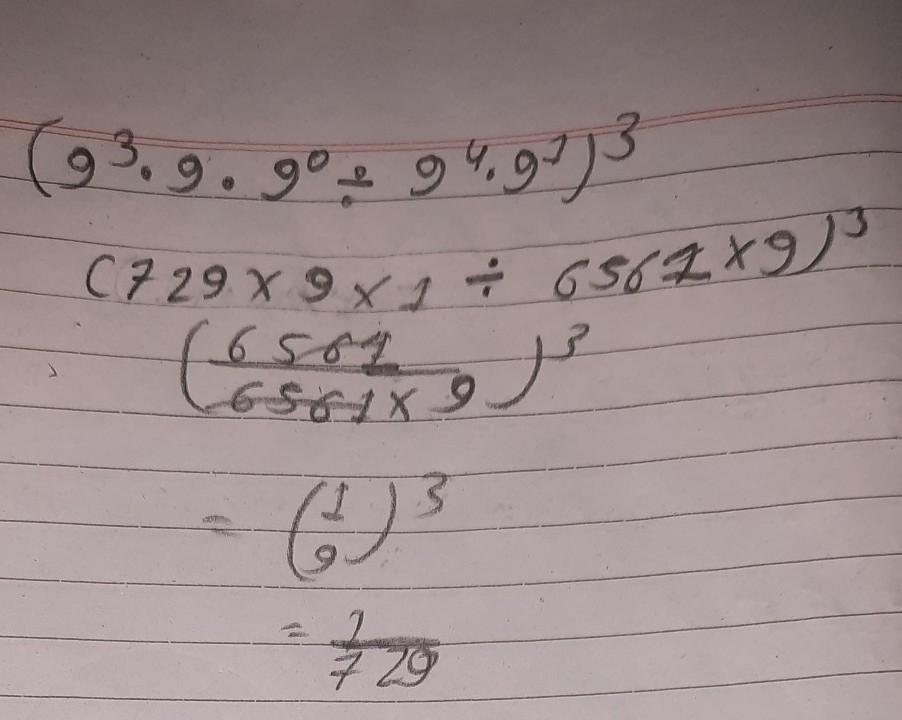 (9³·9·9⁰ ÷ 9⁴·9¹)³
(729 × 9 × 1 ÷ 6561 × 9)³
(6561/6561 × 9)³
= (1/9)³
= 1/729